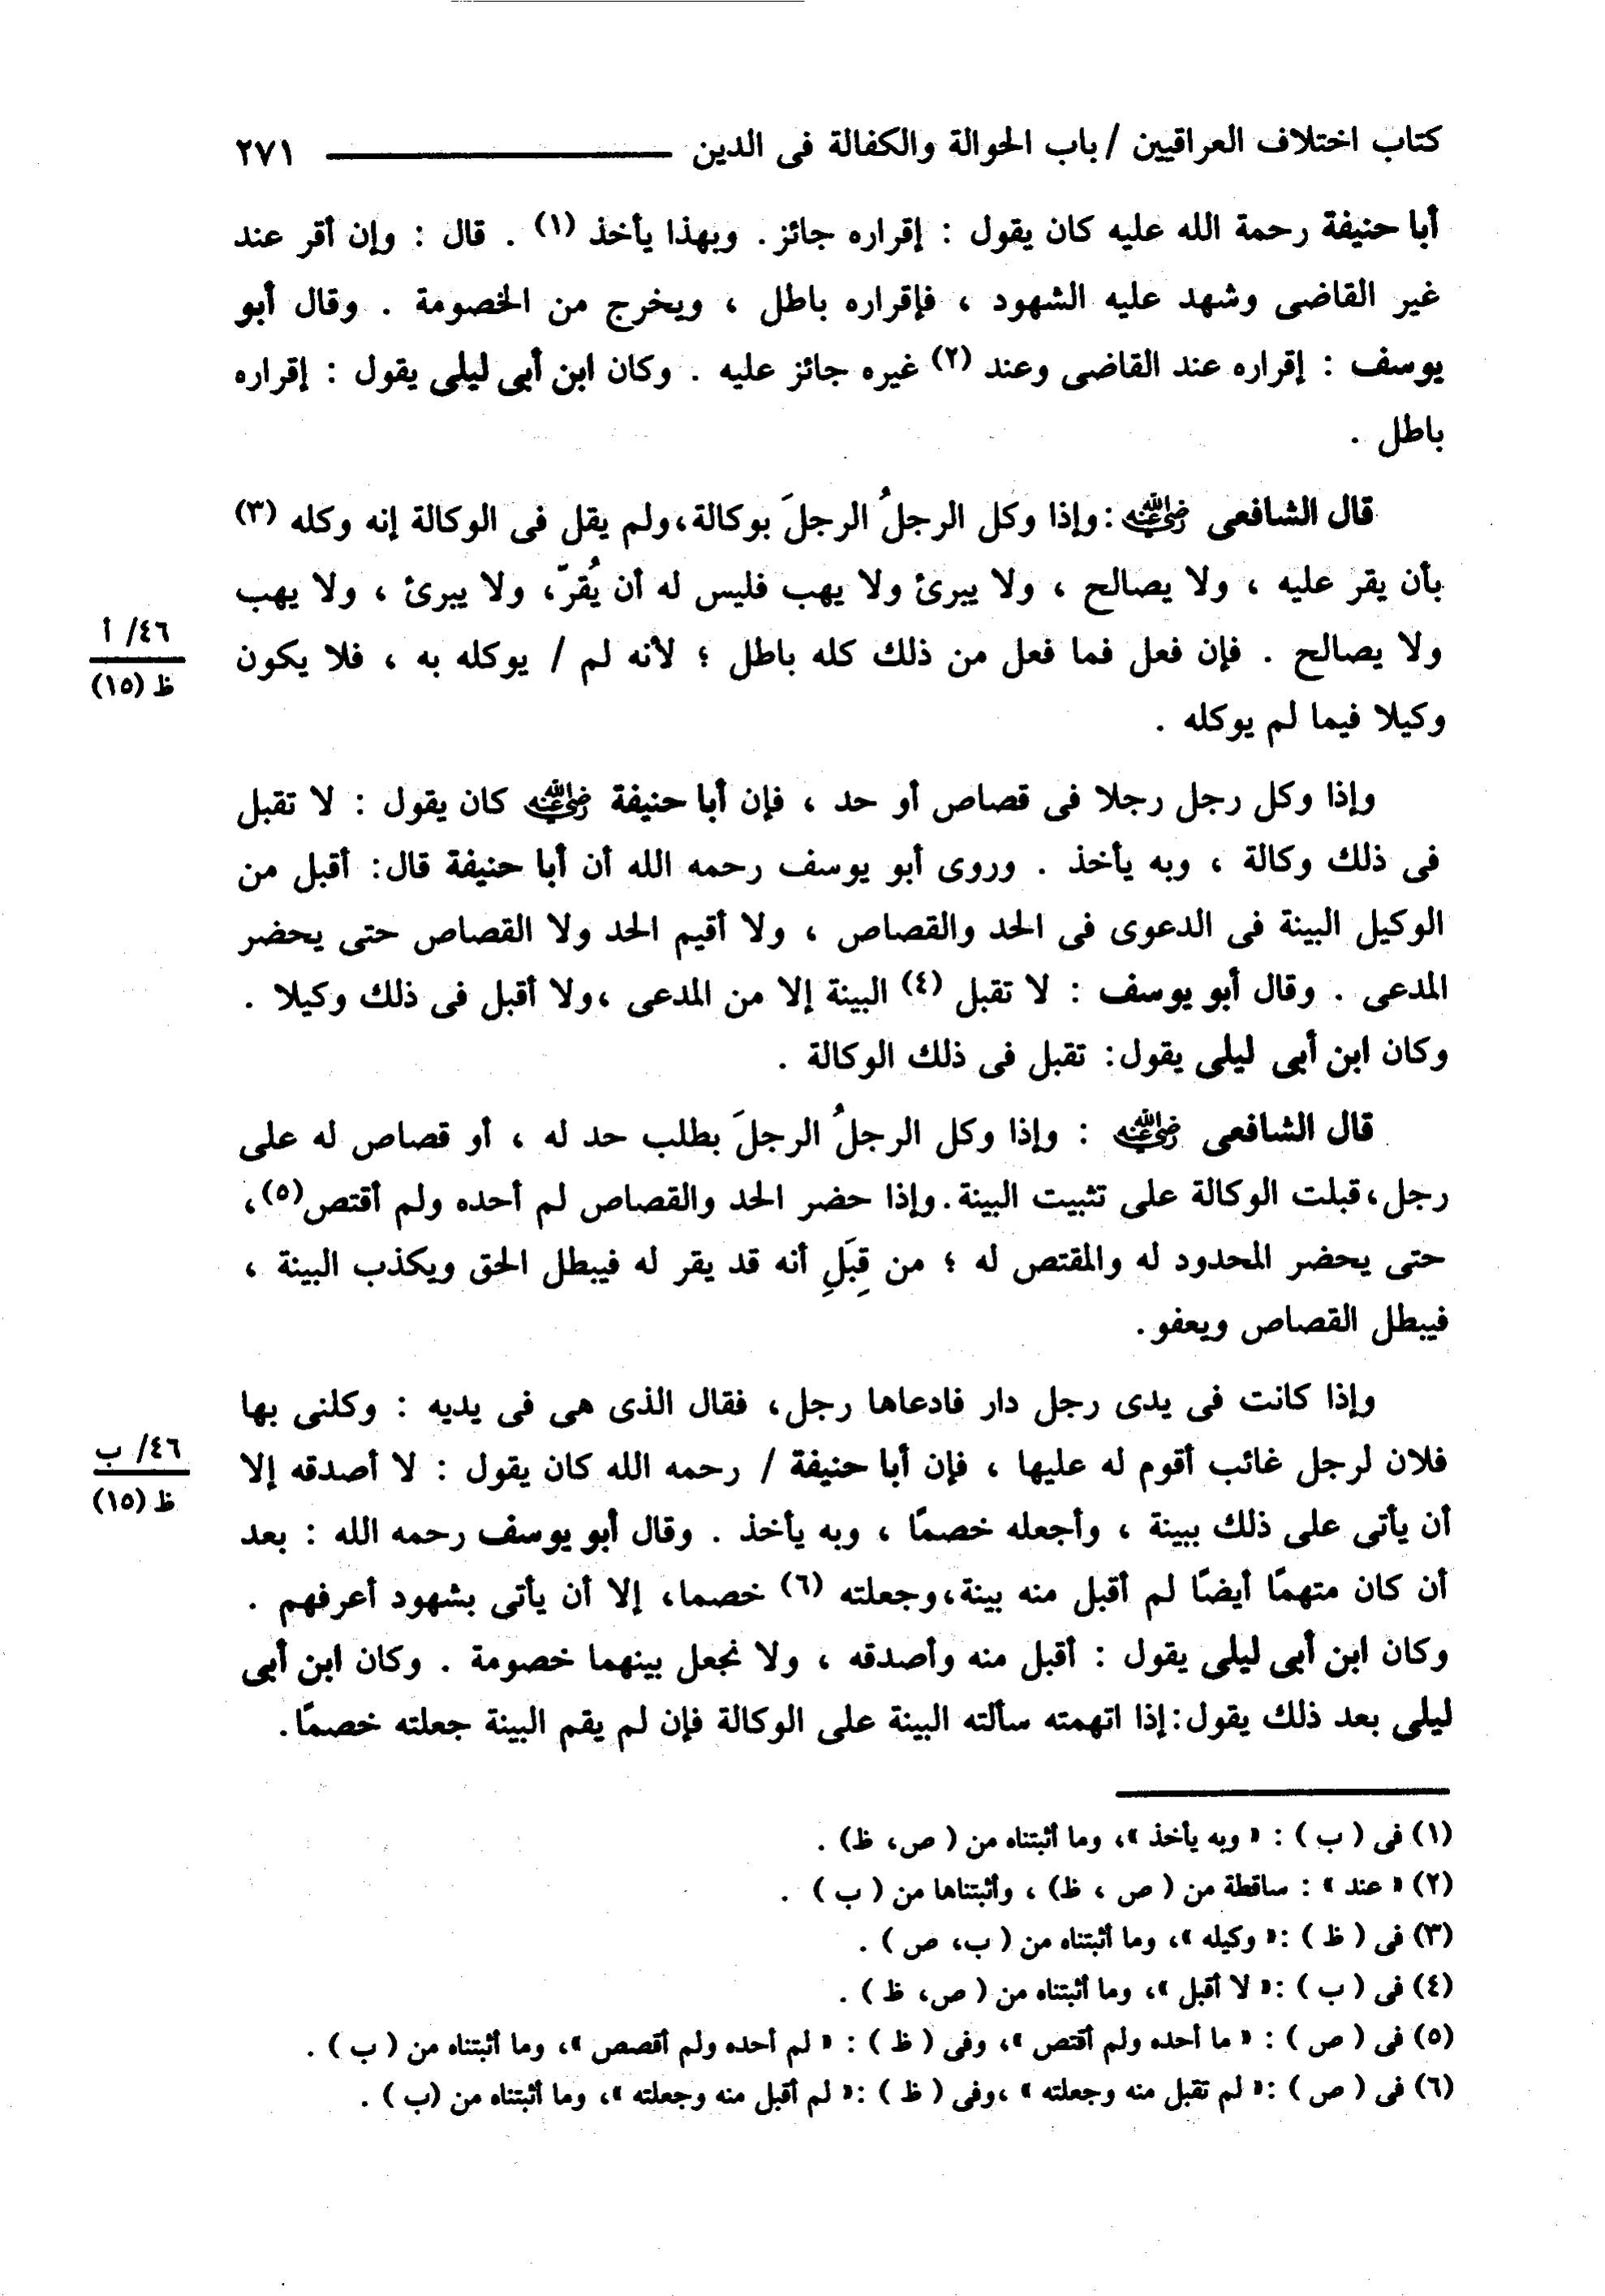 كتاب اختلاف العراقيين / باب الحوالة والكفالة فى الدين ٢٧١
أبا حنيفة رحمة الله عليه كان يقول : إقراره جائز. وبهذا يأخذ (١) . قال : وإن أقر عند
غير القاضى وشهد عليه الشهود ، فإقراره باطل ، ويخرج من الخصومة . وقال أبو
يوسف : إقراره عند القاضى وعند (٢) غيره جائز عليه . وكان ابن أبى ليلى يقول : إقراره
باطل .
قال الشافعى رضي الله عنه : وإذا وكل الرجلُ الرجلَ بوكالة، ولم يقل فى الوكالة إنه وكله (٣)
بأن يقر عليه ، ولا يصالح ، ولا يبرئ ولا يهب فليس له أن يُقرّ، ولا يبرئ ، ولا يهب
ولا يصالح . فإن فعل فما فعل من ذلك كله باطل ؛ لأنه لم / يوكله به ، فلا يكون
٤٦/ أ
ظ (١٥)
وكيلا فيما لم يوكله .
وإذا وكل رجل رجلا فى قصاص أو حد ، فإن أبا حنيفة رضي الله عنه كان يقول : لا تقبل
فى ذلك وكالة ، وبه يأخذ . وروى أبو يوسف رحمه الله أن أبا حنيفة قال: أقبل من
الوكيل البينة فى الدعوى فى الحد والقصاص ، ولا أقيم الحد ولا القصاص حتى يحضر
المدعى . وقال أبو يوسف : لا تقبل (٤) البينة إلا من المدعى ،ولا أقبل فى ذلك وكيلا .
وكان ابن أبى ليلى يقول: تقبل فى ذلك الوكالة .
قال الشافعى رضي الله عنه : وإذا وكل الرجلُ الرجلَ بطلب حد له ، أو قصاص له على
رجل، قبلت الوكالة على تثبيت البينة. وإذا حضر الحد والقصاص لم أحده ولم أقتص(٥)،
حتى يحضر المحدود له والمقتص له ؛ من قِبَلِ أنه قد يقر له فيبطل الحق ويكذب البينة ،
فيبطل القصاص ويعفو.
وإذا كانت فى يدى رجل دار فادعاها رجل، فقال الذى هى فى يديه : وكلنى بها
فلان لرجل غائب أقوم له عليها ، فإن أبا حنيفة / رحمه الله كان يقول : لا أصدقه إلا
٤٦/ ب
ظ (١٥)
أن يأتى على ذلك ببينة ، وأجعله خصمًا ، وبه يأخذ . وقال أبو يوسف رحمه الله : بعد
أن كان متهمًا أيضًا لم أقبل منه بينة، وجعلته (٦) خصما، إلا أن يأتى بشهود أعرفهم .
وكان ابن أبى ليلى يقول : أقبل منه وأصدقه ، ولا نجعل بينهما خصومة . وكان ابن أبى
ليلى بعد ذلك يقول: إذا اتهمته سألته البينة على الوكالة فإن لم يقم البينة جعلته خصمًا.
(١) فى ( ب ) : « وبه يأخذ »، وما أثبتناه من ( ص، ظ) .
(٢) « عند » : ساقطة من ( ص ، ظ) ، وأثبتناها من ( ب ) .
(٣) فى ( ظ ) :« وكيله »، وما أثبتناه من ( ب، ص ) .
(٤) فى ( ب ) :« لا أقبل »، وما أثبتناه من ( ص، ظ ) .
(٥) فى ( ص ) : « ما أحده ولم أقتص »، وفى ( ظ ) : « لم أحده ولم أقصص »، وما أثبتناه من ( ب ) .
(٦) فى ( ص ) :« لم تقبل منه وجعلته » ،وفى ( ظ ) :« لم أقبل منه وجعلته »، وما أثبتناه من (ب ) .